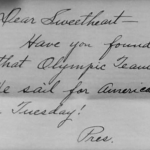 Dear Sweetheart—
Have you found
that Olympic Team
We sail for America
Tuesday!
Pres.